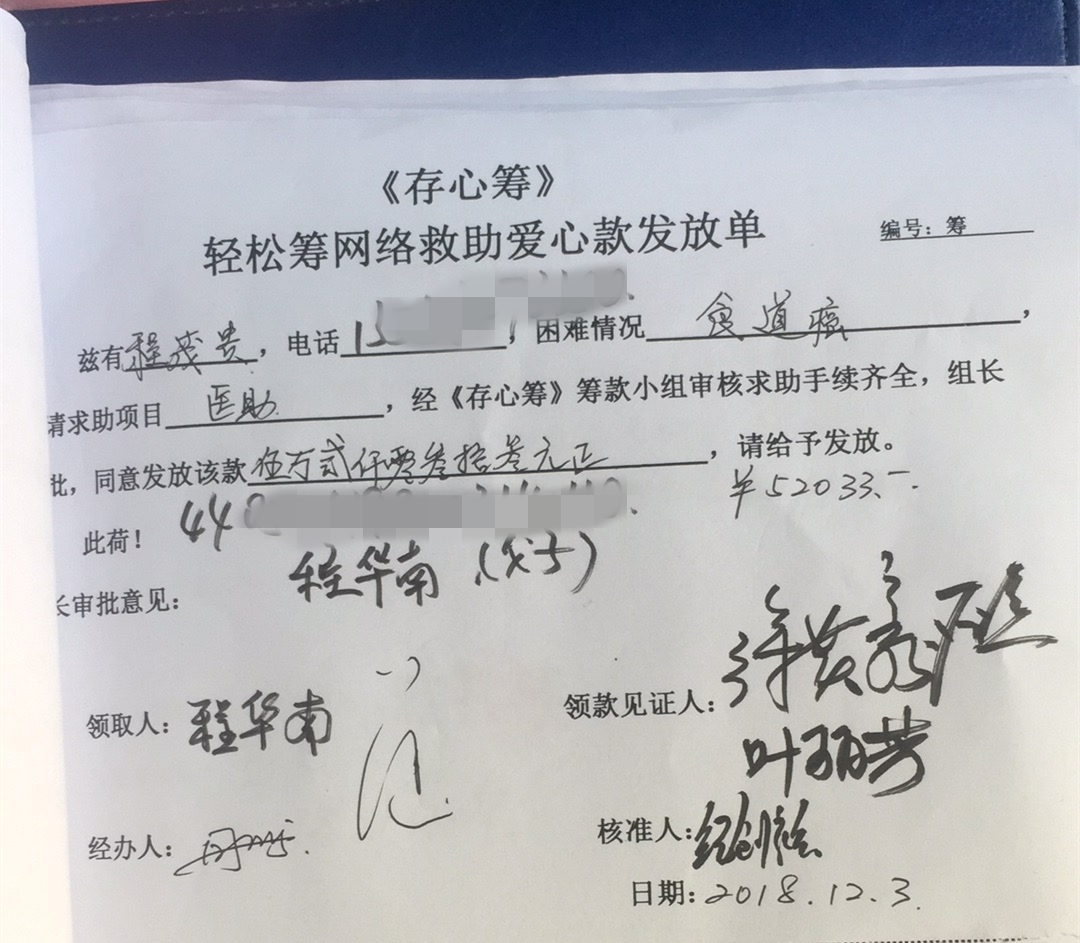 《存心筹》
轻松筹网络救助爱心款发放单
编号：筹
兹有程茂贵，电话15，困难情况食道癌，
请求助项目医助，经《存心筹》筹款小组审核求助手续齐全，组长
批，同意发放该款伍万贰仟零叁拾叁元正，请给予发放。
¥52033.-
此荷！
44
程华南（女士）
长审批意见：
领取人：程华南
领款见证人：
叶丽芳
经办人：
核准人：
日期：2018.12.3.